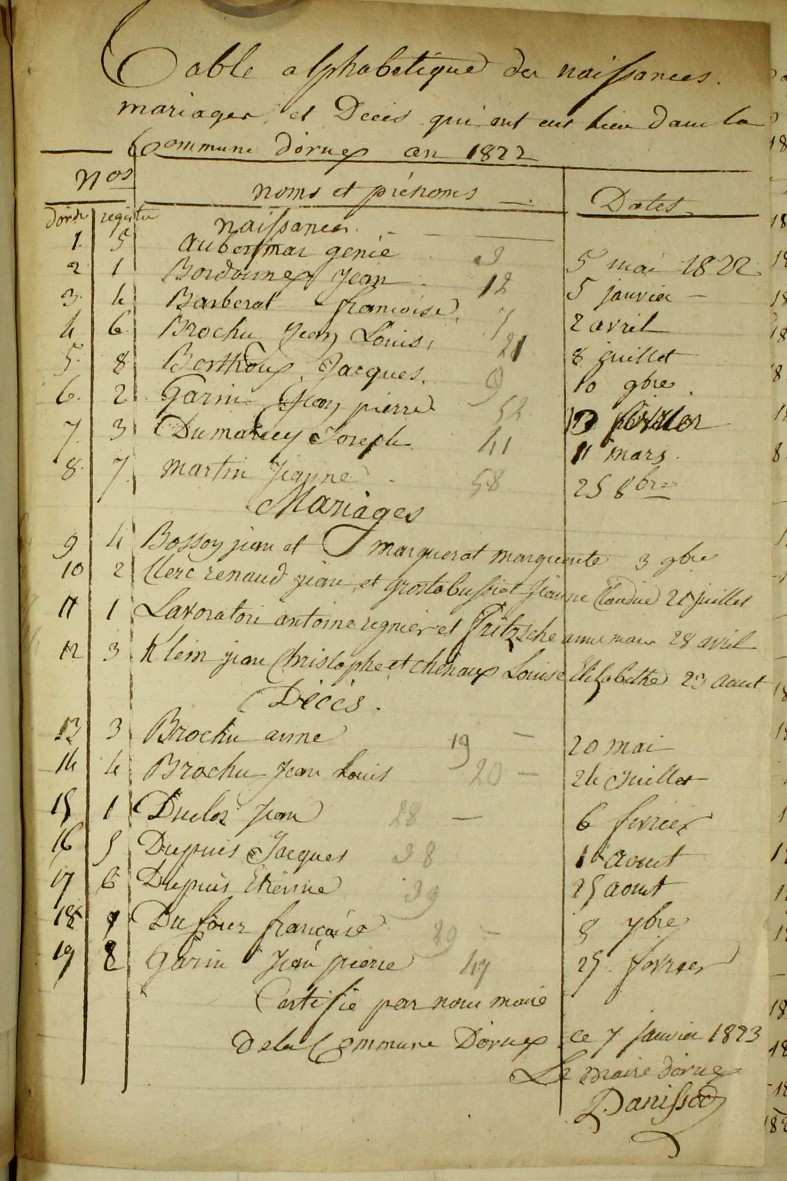 Table alphabetique des naissances.
mariages, et Décès qui ont eut lieu dans la
Commune d'ornex en 1822
Nos noms et prénoms Dates
d'ordre registre
naissances.
1. 5 genie 3 5 mai 1822
2 1 Jean 12 5 janvier
3. 4 Barberat françoise. 7 2 avril
4 6 Brochu Jean Louis. 21 8 juillet
5. 8 Berthoux Jacques. 9 10 9bre
6. 2 Garin Jean pierre 52 février
7. 3 Dumarey Joseph 41 11 mars.
8. 7. martin Jeanne 58 25 8bre
Mariages
9 4 Bossoy jean et marguerat marguerite 3 9bre
10 2 Clerc renaud jean et Jeanne Claudine juillet
11 1 Lavoratori antoine regnier et Fritzsche anne marie 28 avril
12 3 Klein jean Christophe et chenaux Louise Elisabethe 23 aout
Décès.
13 3 Brochu anne 19 20 mai
14 4 Brochu Jean Louis 20 24 Juillet
15 1 Duclos Jean 28 6 fevrier
16 5 Dupuis Jacques 38 aout
17 6 Dupuis Etienne 39 25 aout
18 Dufour françoise 29 8 7bre
19 Garin Jean pierre 47 25. fevrier
Certifié par nous maire
De la Commune D'ornex ce 7 janvier 1823
Le maire d'ornex
Danissod